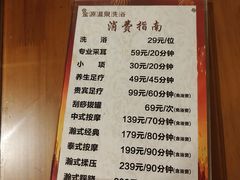 蜜源温泉洗浴
消费指南
洗浴 29元/位
专业采耳 59元/20分钟
小项 30元/20分钟
养生足疗 49元/45分钟
贵宾足疗 99元/60分钟(含浴资)
刮痧拨罐 69元/次(含浴资)
中式按摩 139元/70分钟(含浴资)
瀚式经典 179元/80分钟(含浴资)
泰式按摩 199元/90分钟(含浴资)
瀚式揉压 239元/90分钟(含浴资)